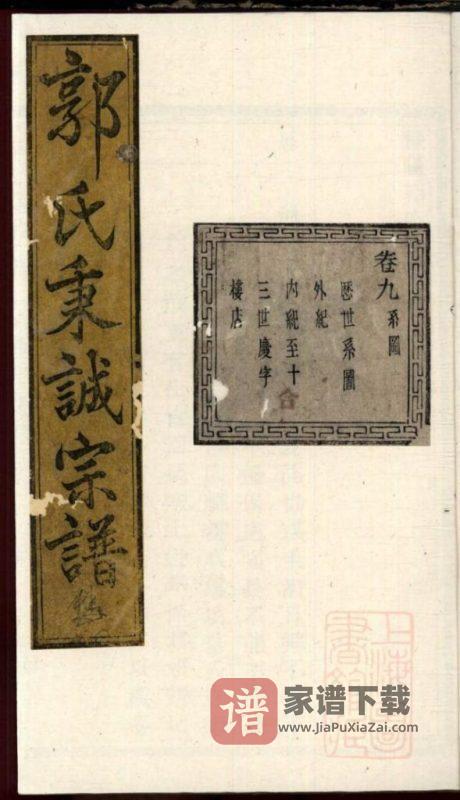 郭氏秉誠宗譜
卷九 系圖
歷世系圖
外紀
內紀至十
三世慶字
樓店
合
上海圖
書館藏
谱 家谱下载
www.JiaPuXiaZai.com